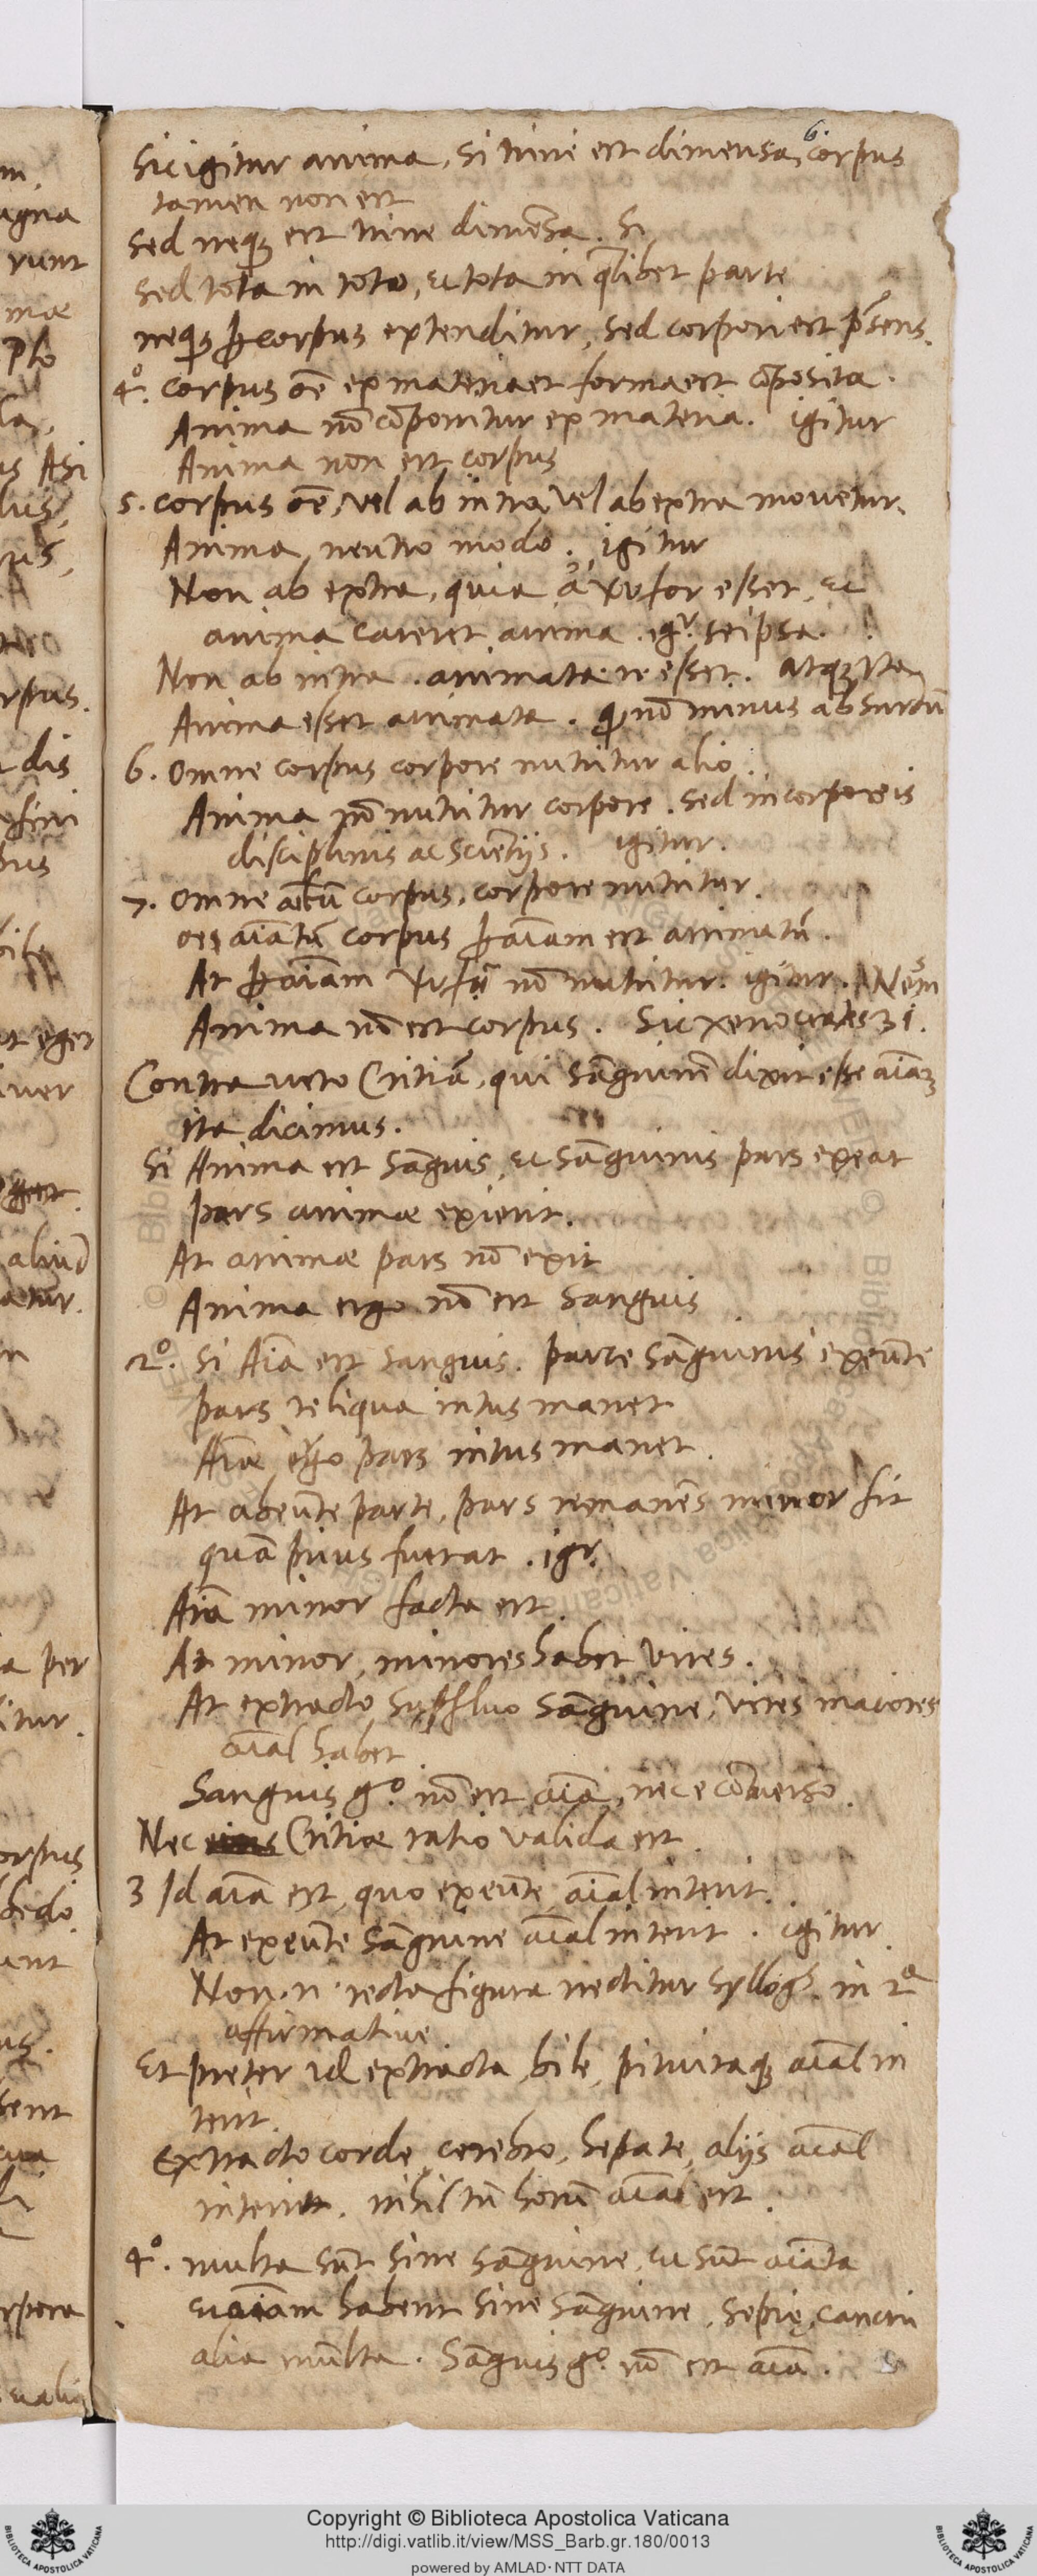 6.
Sic igitur anima, si trine est dimensa, corpus
tamen non est
Sed neqȝ est trine dimēsa. Si
Sed tota in toto, et tota in q̄libet parte
neqȝ ꝑ corpus extenditur, sed corpori est p̄sens.
4°. corpus oē ex materia et forma est cōposita.
Anima nō cōponitur ex materia. igitur
Anima non est corpus
5. corpus oē, vel ab intra, vel ab extra mouetur.
Anima neutro modo. igitur
Non ab extra, quia esset, et
anima careret anima. seipsa.
Non ab intra. animata esset. atqȝ ita
Anima esset animata. nō minus absurdū
6. Omne corpus corpore nutritur alio.
Anima nō nutritur corpore. sed incorporeis
disciplinis ac scientijs. igitur.
7. Omne corpus, corpore nutritur.
aīatū corpus ꝑ aīam est animatū.
At ꝑ aīam nō nutritur. igitur.
Anima nō est corpus. Sic xenocrates
Contra uero Critiā, qui sāguinē dixit esse aīaȝ
ita dicimus.
Si Anima est sāguis, et sāguinis pars exeat
pars animæ exierit.
At animæ pars nō exit
Anima ergo nō est sanguis
2°. Si Aīa est sanguis. parte sāguinis exeūte
pars reliqua intus manet
Aīæ ergo pars intus manet.
At abeūte parte, pars remanēs minor fit
quā prius fuerat. igr.
Aīa minor facta est.
At minor, minores habet vires.
At extracto supfluo sāguine, vires maiores
aīal habet.
Sanguis g°. nō est aīa, nec e cōuerso.
Nec Critiæ ratio valida est.
3 Id aīa est, quo exeūte, aīal interit.
At exeūte sāguine aīal interit. igitur
Non. n. recta figura nectitur syllogs. in 2ª
affirmatiue.
Et preter id extracta bile, pituitaqȝ aīal in
terit.
Extracto corde, cerebro, hepate, alijs aīal
interit. nihil tn̄ horū aīa est.
4°. multa sūt sine sāguine, et sūt aīata
et aīam habent sine sāguine, sepię, cancri
alia multa. Sāguis g°. nō est aīa.
Copyright © Biblioteca Apostolica Vaticana
http://digi.vatlib.it/view/MSS_Barb.gr.180/0013
powered by AMLAD · NTT DATA